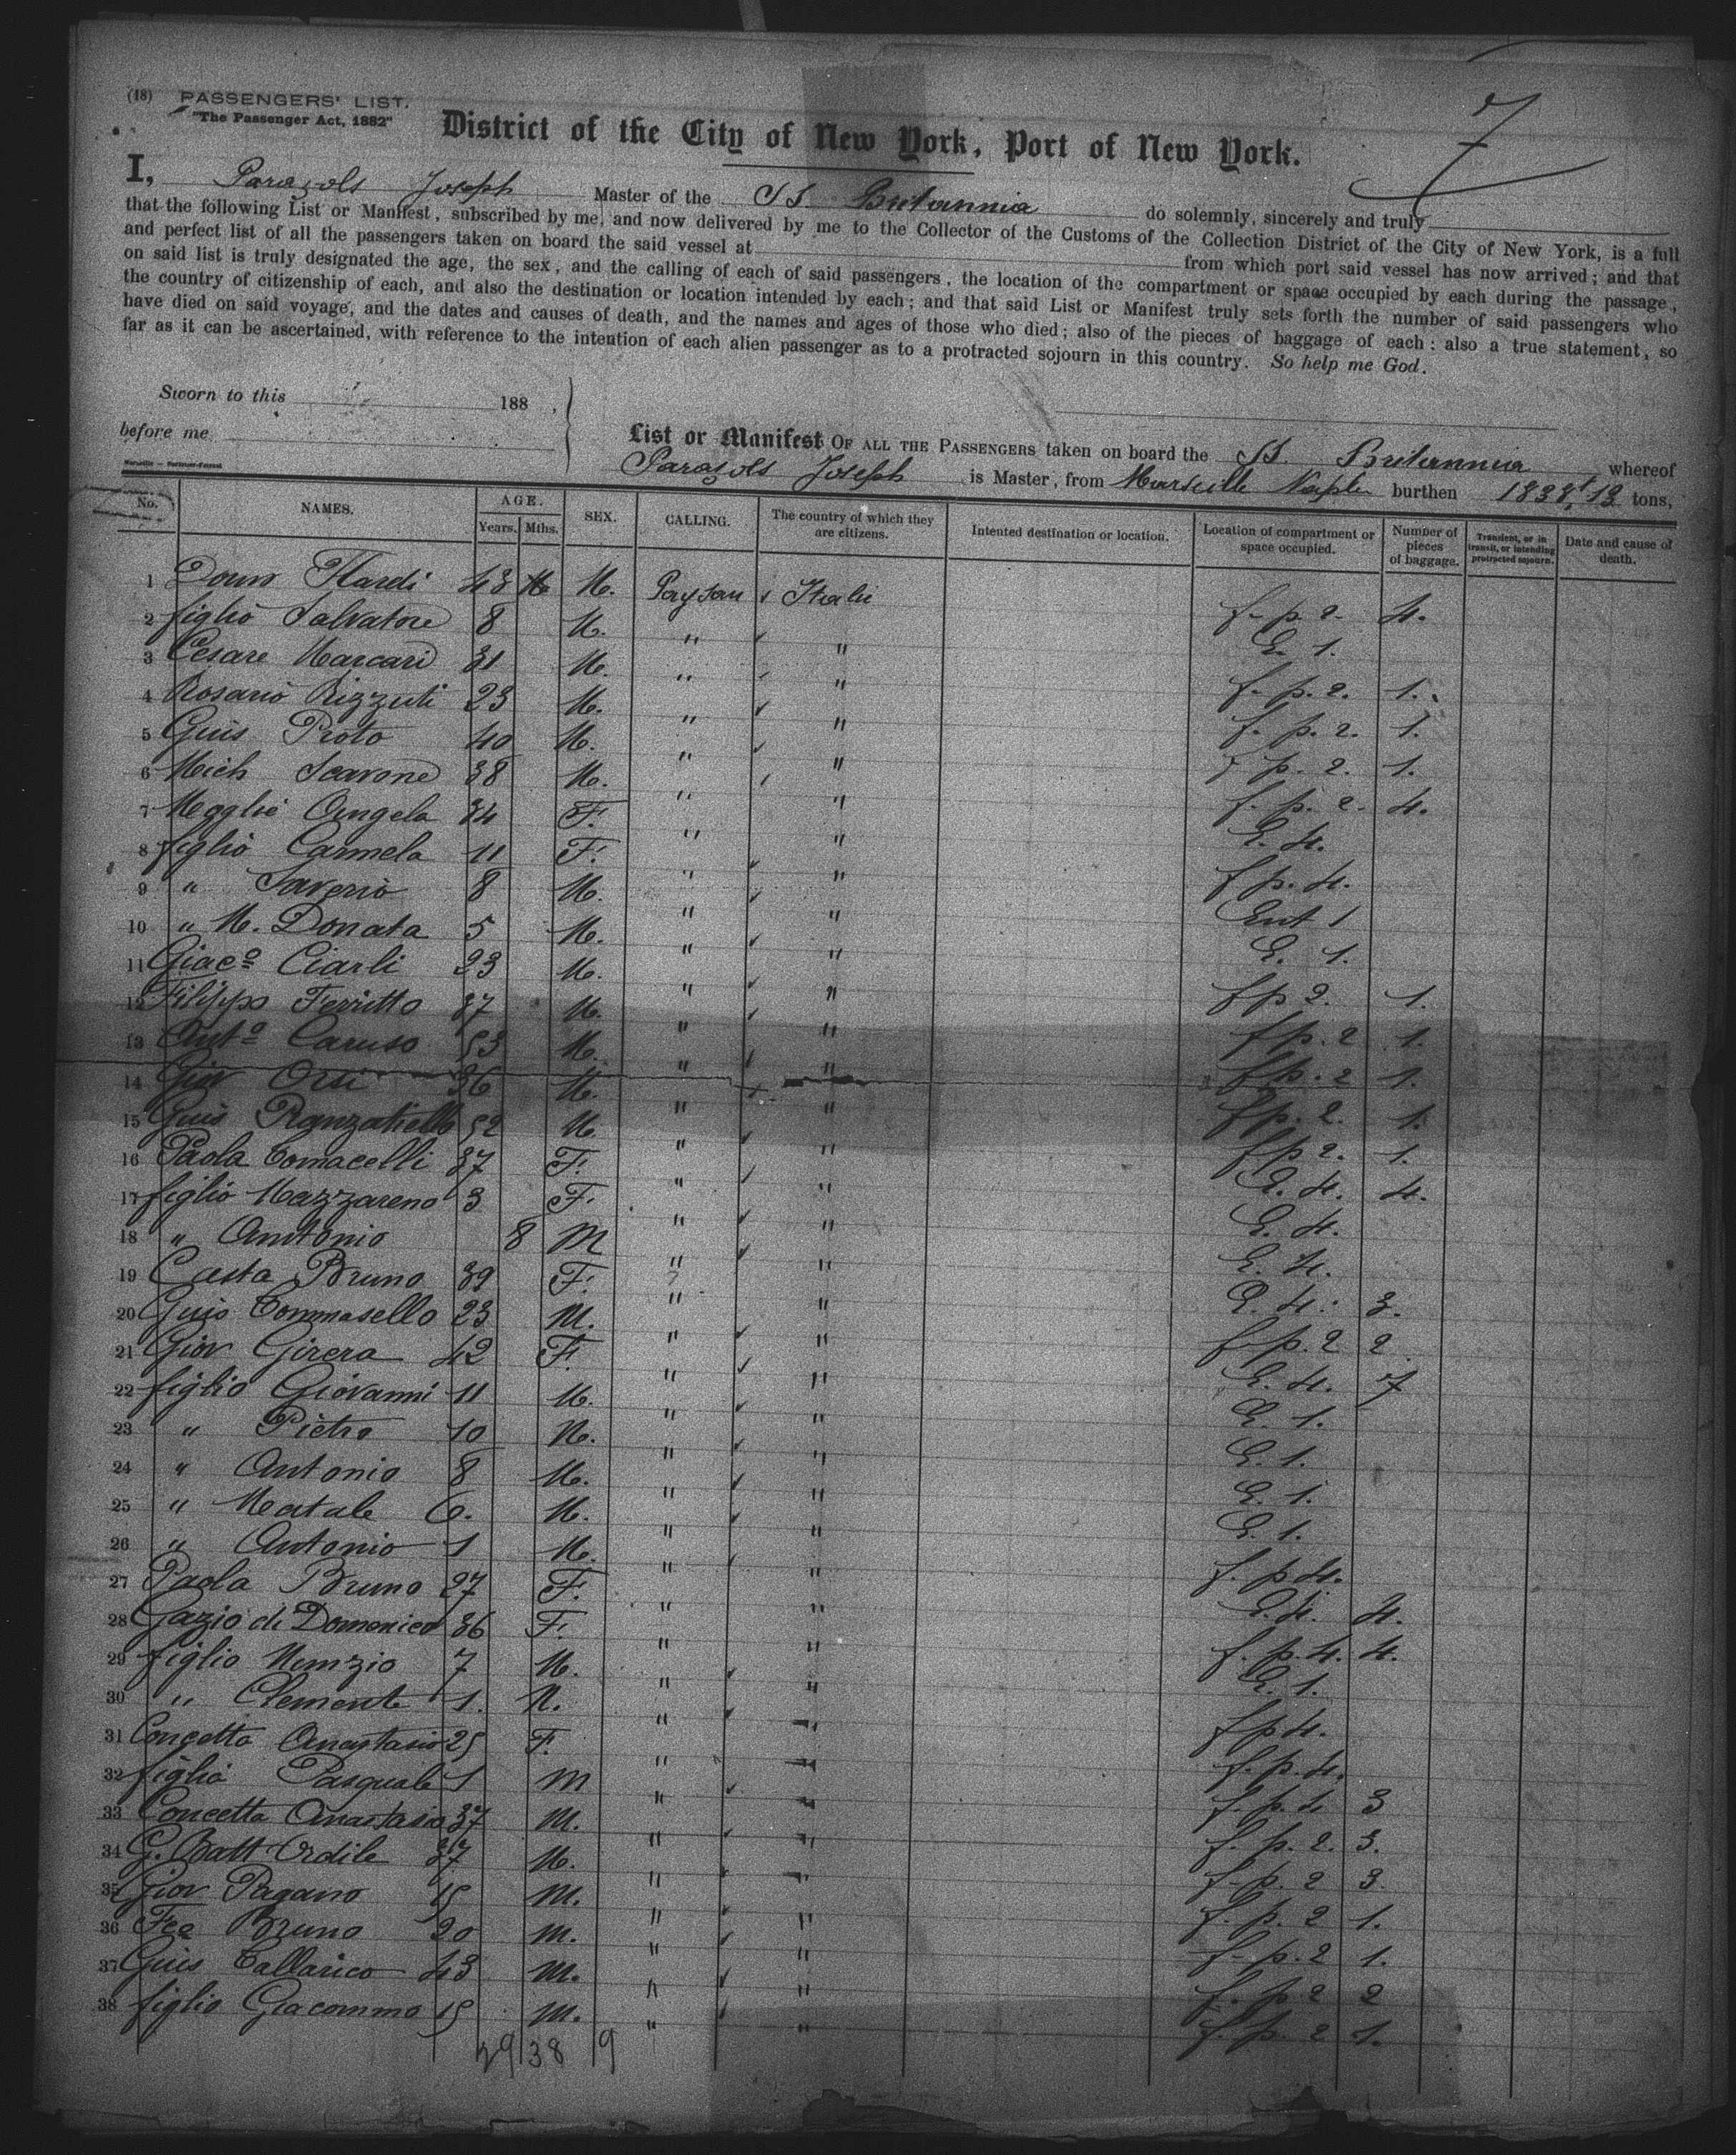 (18) PASSENGERS' LIST.
"The Passenger Act, 1882"
7
District of the City of New York, Port of New York.
I, Parazols Joseph Master of the SS. Britannia do solemnly, sincerely and truly
that the following List or Manifest, subscribed by me, and now delivered by me to the Collector of the Customs of the Collection District of the City of New York, is a full
and perfect list of all the passengers taken on board the said vessel at from which port said vessel has now arrived; and that
on said list is truly designated the age, the sex, and the calling of each of said passengers, the location of the compartment or space occupied by each during the passage,
the country of citizenship of each, and also the destination or location intended by each; and that said List or Manifest truly sets forth the number of said passengers who
have died on said voyage, and the dates and causes of death, and the names and ages of those who died; also of the pieces of baggage of each: also a true statement, so
far as it can be ascertained, with reference to the intention of each alien passenger as to a protracted sojourn in this country. So help me God.
Sworn to this 188 ,
before me
List or Manifest OF ALL THE PASSENGERS taken on board the SS. Britannia whereof
Parazols Joseph is Master, from Marseille Naples burthen 1838,13 tons,
No. NAMES. AGE. Years. Mths. SEX. CALLING. The country of which they are citizens. Intented destination or location. Location of compartment or space occupied. Number of pieces of baggage. Transient, or in transit, or intending protracted sojourn. Date and cause of death.
1 43 M. Paysan Italie f. p. 2. 4.
2 figlio Salvatore 8 M. " " E. 1.
3 Cesare Marcari 31 M. " " f. p. 2. 1.
4 Rosario Rizzuti 23 M. " " f. p. 2. 1.
5 Guis Proto 40 M. " " f p. 2. 1.
6 Mich Scavone 38 M. " " f. p. 2. 4.
7 Moglie Angela 34 F. " " E. 4.
8 figlio Carmela 11 F. " " f p. 4.
9 " Saverio 8 M. " " Ent 1
10 " M. Donata 5 M. " " E. 1.
11 Giaco Ciarli 23 M. " " f p 2. 1.
12 Filippo Ferritto 37 M. " " f p. 2 1.
13 Anto Caruso 53 M. " " f p. 2 1.
14 Giov Orsi 36 M. " " f p. 2. 1.
15 Guis 52 M. " " f p 2. 1.
16 Paola Tomacelli 37 F. " " E. 4. 4.
17 figlio Nazzareno 3 F. " " E. 4.
18 " Antonio 8 M " " E. 4.
19 Casta Bruno 39 F. " " E. 4. 3.
20 Guis Tommasello 23 M. " " f p. 2 2
21 Giov Girera 42 F. " " E. 4. 7
22 figlio Giovanni 11 M. " " E. 1.
23 " Pietro 10 M. " " E. 1.
24 " Antonio 8 M. " " E. 1.
25 " Natale 6. M. " " E. 1.
26 " Antonio 1 M. " " f. p 4.
27 Paola Bruno 27 F. " " E. 4. 4.
28 Gazio di Domenico 36 F. " " f. p. 4. 4.
29 figlio Nunzio 7 M. " " E. 1.
30 " Clemente 1. M. " " f p 4.
31 Concetta Anastasio 25 F. " " f. p. 4.
32 figlio Pasquale 1 M " " f. p. 4 3
33 Concetta Anastasio 37 M. " " f. p. 2. 3.
34 G. Batt Ordile 37 M. " " f. p. 2 3.
35 Giov Pagano 15 M. " " f. p. 2 1.
36 Fco Bruno 20 M. " " f. p. 2 1.
37 Guis Tallarico 43 M. " " f. p 2 2
38 figlio Giacommo 15 M. " " f. p. 2 1.
29 38 9